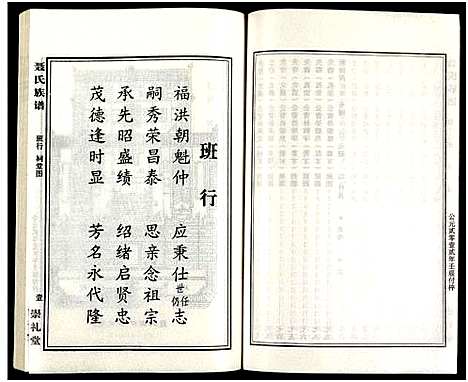 班行
福洪朝魁仲 应秉仕世仍任志
嗣秀荣昌泰 思亲念祖宗
承先昭盛绩 绍绪启贤忠
茂德逢时显 芳名永代隆
聂氏族谱
班行 祠堂图
壹
崇礼堂
公元贰零壹贰年壬辰付梓